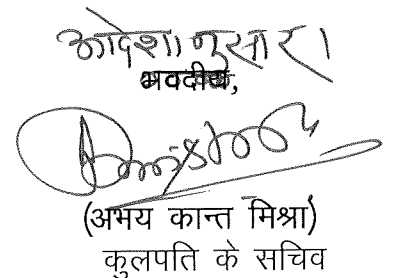 आदेशानुसार।
भवदीय,
(अभय कान्त मिश्रा)
कुलपति के सचिव